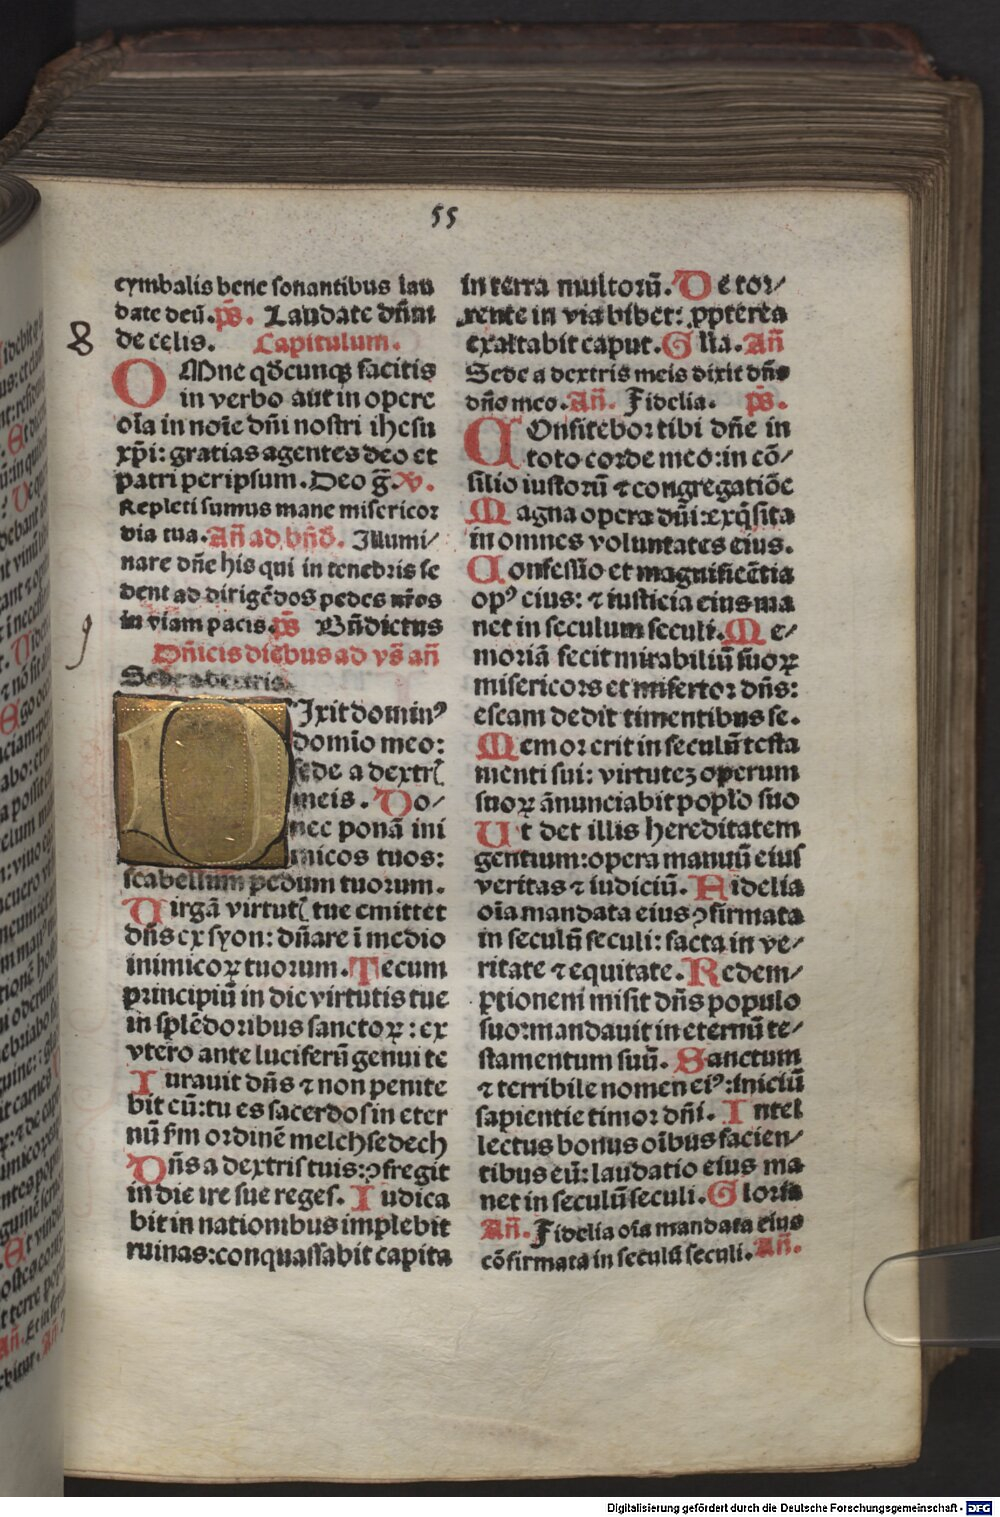 55
cymbalis bene sonantibus lau
date deū. p̄s. Laudate dn̄m
8
de celis. Capitulum.
OMne qd̄cunqꝫ facitis
in verbo aut in opere
oīa in noīe dn̄i nostri ihesu
xp̄i: gratias agentes deo et
patri per ipsum. Deo g̅. V.
Repleti sumus mane misericor
dia tua. An̄ ad bn̄d̄. Illumi/
nare dn̄e his qui in tenebris se
dent ad dirigēdos pedes nr̄os
in viam pacis. p̄s Bn̄dictus
9
Dn̄icis diebus ad vs̄ an̄
Sede a dextris.
DIxit dominꝰ
domīo meo:
sede a dextrꝭ
meis. Do/
nec ponā ini
micos tuos:
scabellum pedum tuorum.
Virgā virtutꝭ tue emittet
dn̄s ex syon: dn̄are ī medio
inimicoꝝ tuorum. Tecum
principiū in die virtutis tue
in splēdoribus sanctoꝝ: ex
vtero ante luciferū genui te
Iurauit dn̄s ⁊ non penite
bit eū: tu es sacerdos in eter
nū ẜm ordinē melchsedech
Dn̄s a dextris tuis: ꝯfregit
in die ire sue reges. Iudica
bit in nationibus implebit
ruinas: conquassabit capita
in terra multorū. De tor/
rente in via bibet: ꝓpterea
exaltabit caput. Gl̄ia. An̄
Sede a dextris meis dixit dn̄s
dn̄o meo. An̄. Fidelia. p̄s.
COnfitebor tibi dn̄e in
toto corde meo: in cō/
silio iustorū ⁊ congregatiōe
Magna opera dn̄i: exq̄sita
in omnes voluntates eius.
Confessio et magnificētia
opꝰ eius: ⁊ iusticia eius ma
net in seculum seculi. Me/
moriā fecit mirabiliū suoꝝ
misericors et misertor dn̄s:
escam dedit timentibus se.
Memor erit in seculū testa
menti sui: virtuteꝫ operum
suoꝝ ānunciabit popl̄o suo
Ut det illis hereditatem
gentium: opera manuū eius
veritas ⁊ iudiciū. Fidelia
oīa mandata eius ꝯfirmata
in seculū seculi: facta in ve/
ritate ⁊ equitate. Redem/
ptionem misit dn̄s populo
suo: mandauit in eternū te/
stamentum suū. Sanctum
⁊ terribile nomen eiꝰ: iniciū
sapientie timor dn̄i. Intel
lectus bonus oībus facien/
tibus eū: laudatio eius ma
net in seculū seculi. Gloria
An̄. Fidelia oīa mandata eius
cōfirmata in seculū seculi. An̄.
Digitalisierung gefördert durch die Deutsche Forschungsgemeinschaft - DFG